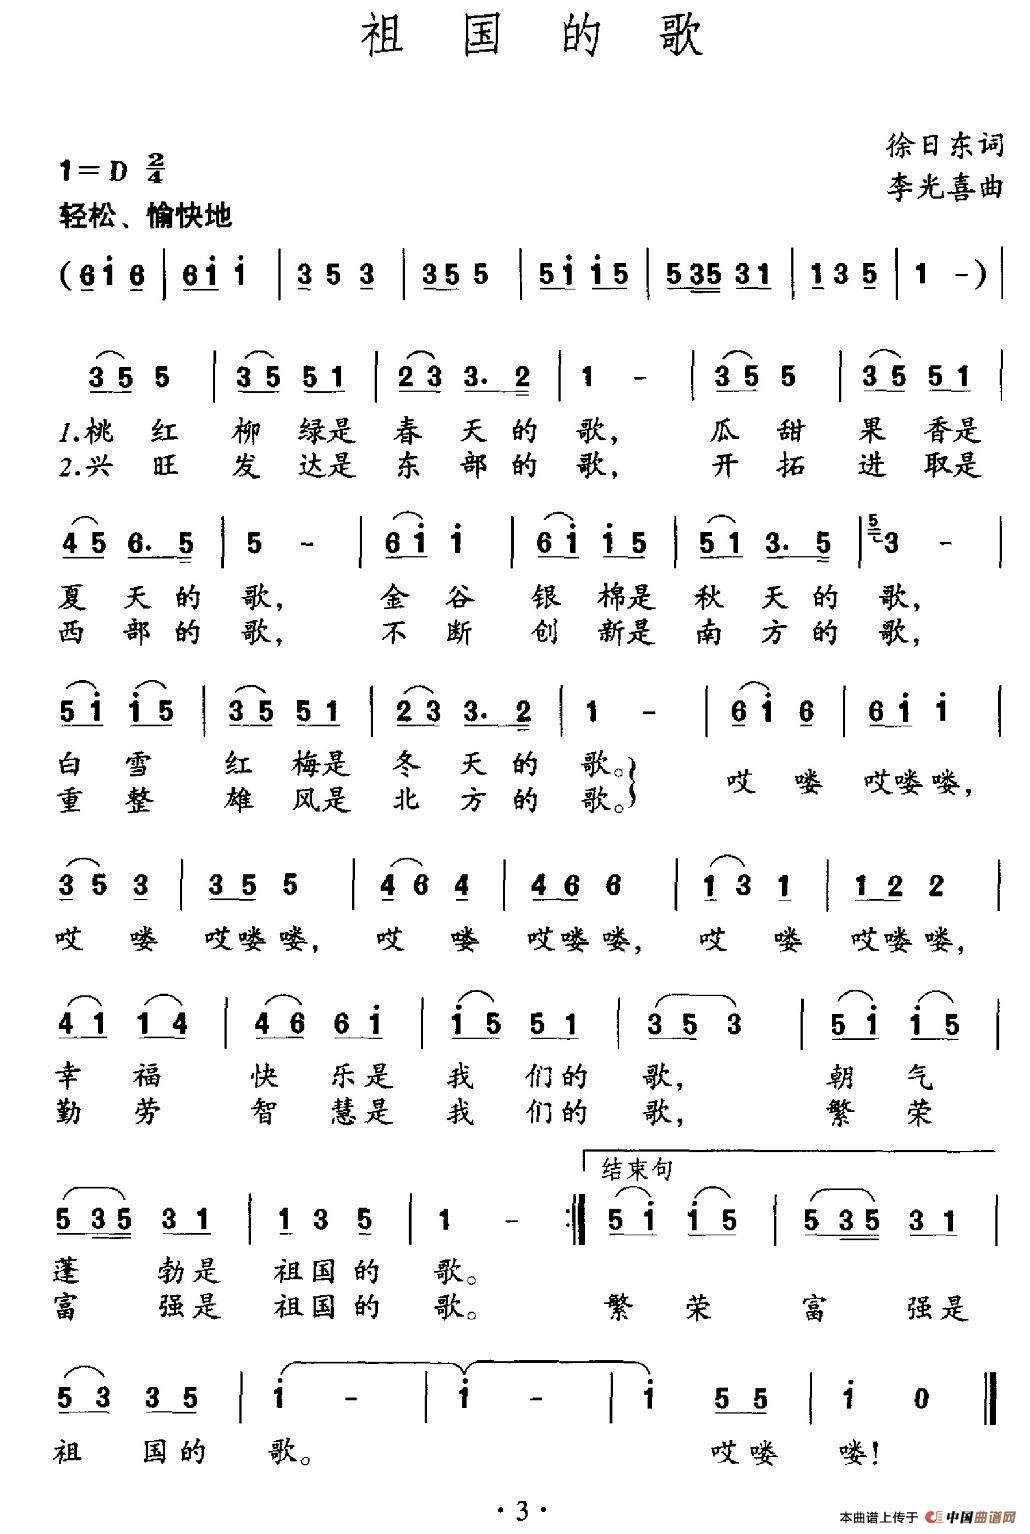 祖国的歌
徐日东词
1=D 2/4
李光喜曲
轻松、愉快地
(6 i 6 | 6 i i | 3 5 3 | 3 5 5 | 5 i i 5 | 5 3 5 3 1 | 1 3 5 | 1 - ) |
3 5 5 | 3 5 5 1 | 2 3 3. 2 | 1 - | 3 5 5 | 3 5 5 1 |
1.桃红 柳绿是春天的歌, 瓜甜果香是
2.兴旺 发达是东部的歌, 开拓进取是
4 5 6. 5 | 5 - | 6 i i | 6 i i 5 | 5 1 3. 5 | 5 3 - |
夏天的歌, 金谷银棉是秋天的歌,
西部的歌, 不断创新是南方的歌,
5 i i 5 | 3 5 5 1 | 2 3 3. 2 | 1 - | 6 i 6 | 6 i i |
白雪红梅是冬天的歌。 哎喽 哎喽喽,
重整雄风是北方的歌。
3 5 3 | 3 5 5 | 4 6 4 | 4 6 6 | 1 3 1 | 1 2 2 |
哎喽 哎喽喽, 哎喽 哎喽喽, 哎喽 哎喽喽,
4 1 1 4 | 4 6 6 i | i 5 5 1 | 3 5 3 | 5 i i 5 |
幸福快乐是我们的歌, 朝气
勤劳智慧是我们的歌, 繁荣
结束句
5 3 5 3 1 | 1 3 5 | 1 - :| 5 i i 5 | 5 3 5 3 1 |
蓬勃是祖国的歌。
富强是祖国的歌。 繁荣富强是
5 3 3 5 | i - | i - | i 5 5 | i 0 ||
祖国的歌。 哎喽喽!
·3·
本曲谱上传于 中国曲谱网